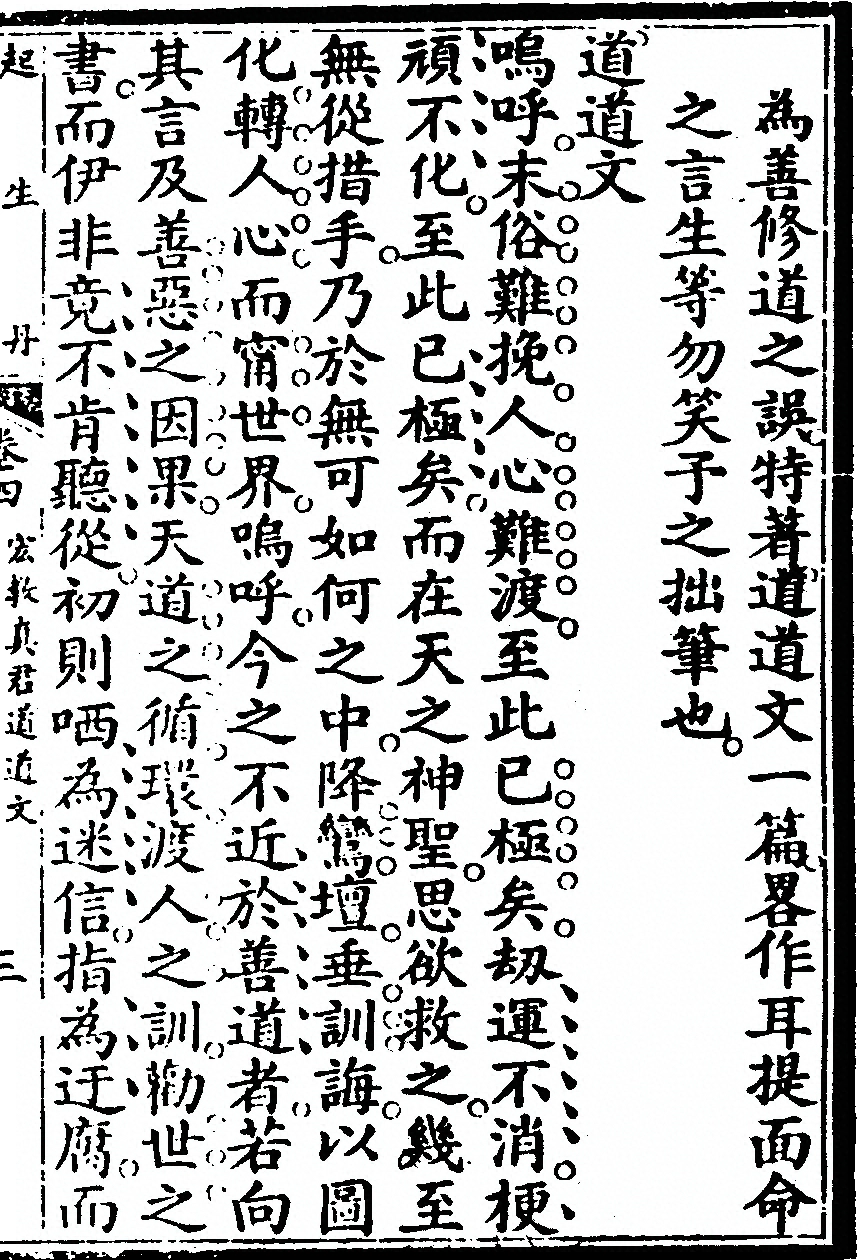 為善修道之誤特著道道文一篇畧作耳提面命
之言生等勿笑予之拙筆也
道道文
嗚呼末俗難挽人心難渡至此已極矣劫運不消梗
頑不化至此已極矣而在天之神聖思欲救之幾至
無從措手乃於無可如何之中降鸞壇垂訓誨以圖
化轉人心而甯世界嗚呼今之不近於善道者若向
其言及善惡之因果天道之循環渡人之訓勸世之
書而伊非竟不肯聽從初則哂為迷信指為迂腐而
起生丹 卷四 宏教真君道道文 三